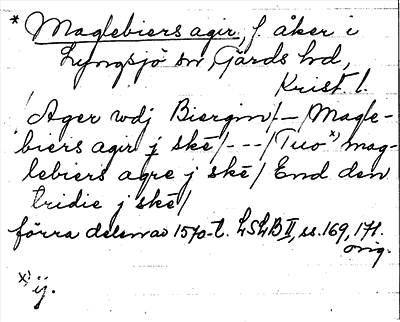 * Maglebiers agir, f. åker i
Lyngsjö sn, Gärds hd,
Krist. l.
/Ager wdj Biergm/ – /Magle-
biers agir j skē/ --- /Tuo x) mag-
lebiers agre j skē/ End den
tridie j skē/
förra delen av 1570-t. LSLB II, ss. 169, 171.
orig.
x) ij.